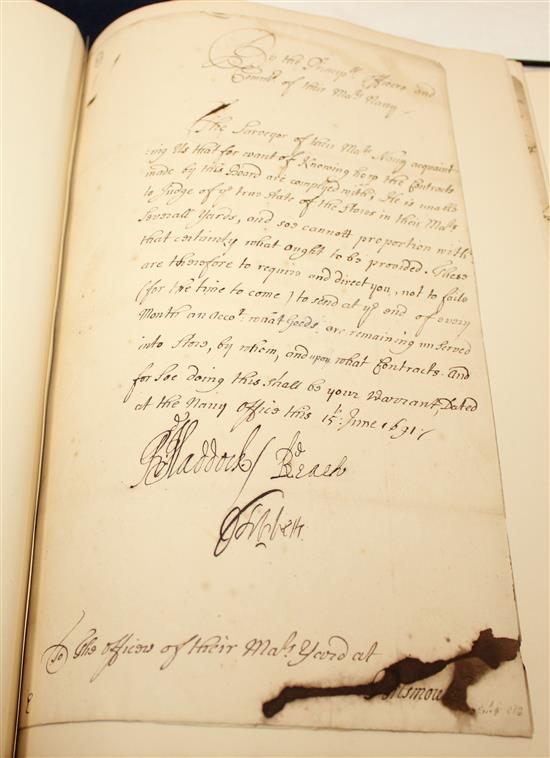 By the Princip:ll Officers and
Comm:rs of their Ma:ts Navy
The Surveyor of their Ma:ts Navy acquaint-
:ing Us that for want of Knowing how the Contracts
made by this Board are complyed with, He is unable
to Judge of ye true State of the Stores in their Ma:ts
Severall Yards, and soe cannott proportion with
that certainty what ought to be provided. These
are therefore to require and direct you, not to faile
(for the time to come) to send at ye end of every
Month an Acco:t what Goods are remaining unserved
into Store, by whom, and upon what Contracts. And
for Soe doing this shall be your Warrant, Dated
at the Navy Office this 15:th June 1691:/
R Haddock Rd Beach
To The Officers of their Ma:ts Yard at
Portsmou